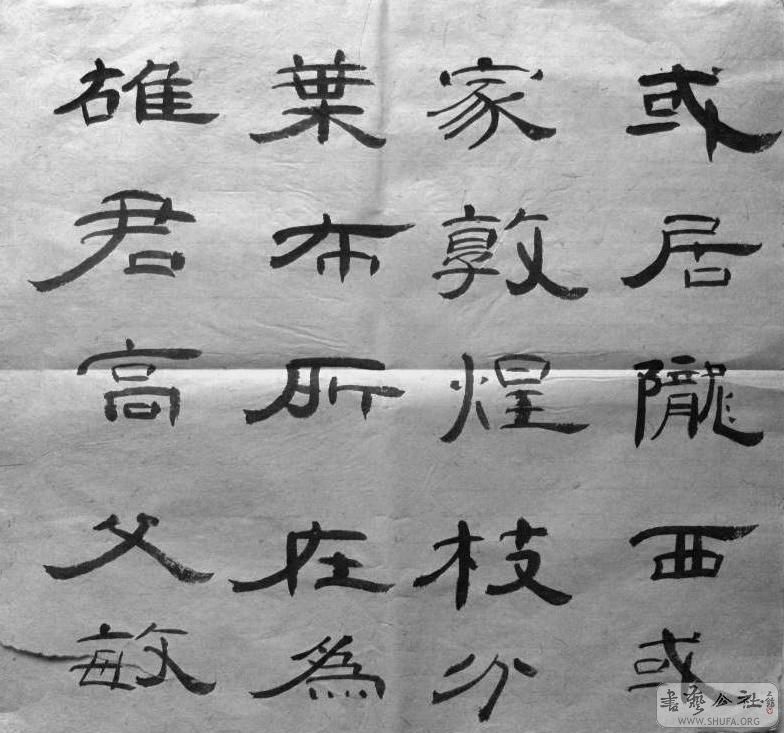 或居隴西或
家敦煌枝分
葉布所在為
雄君高父敏
書藝公社
WWW.SHUFA.ORG